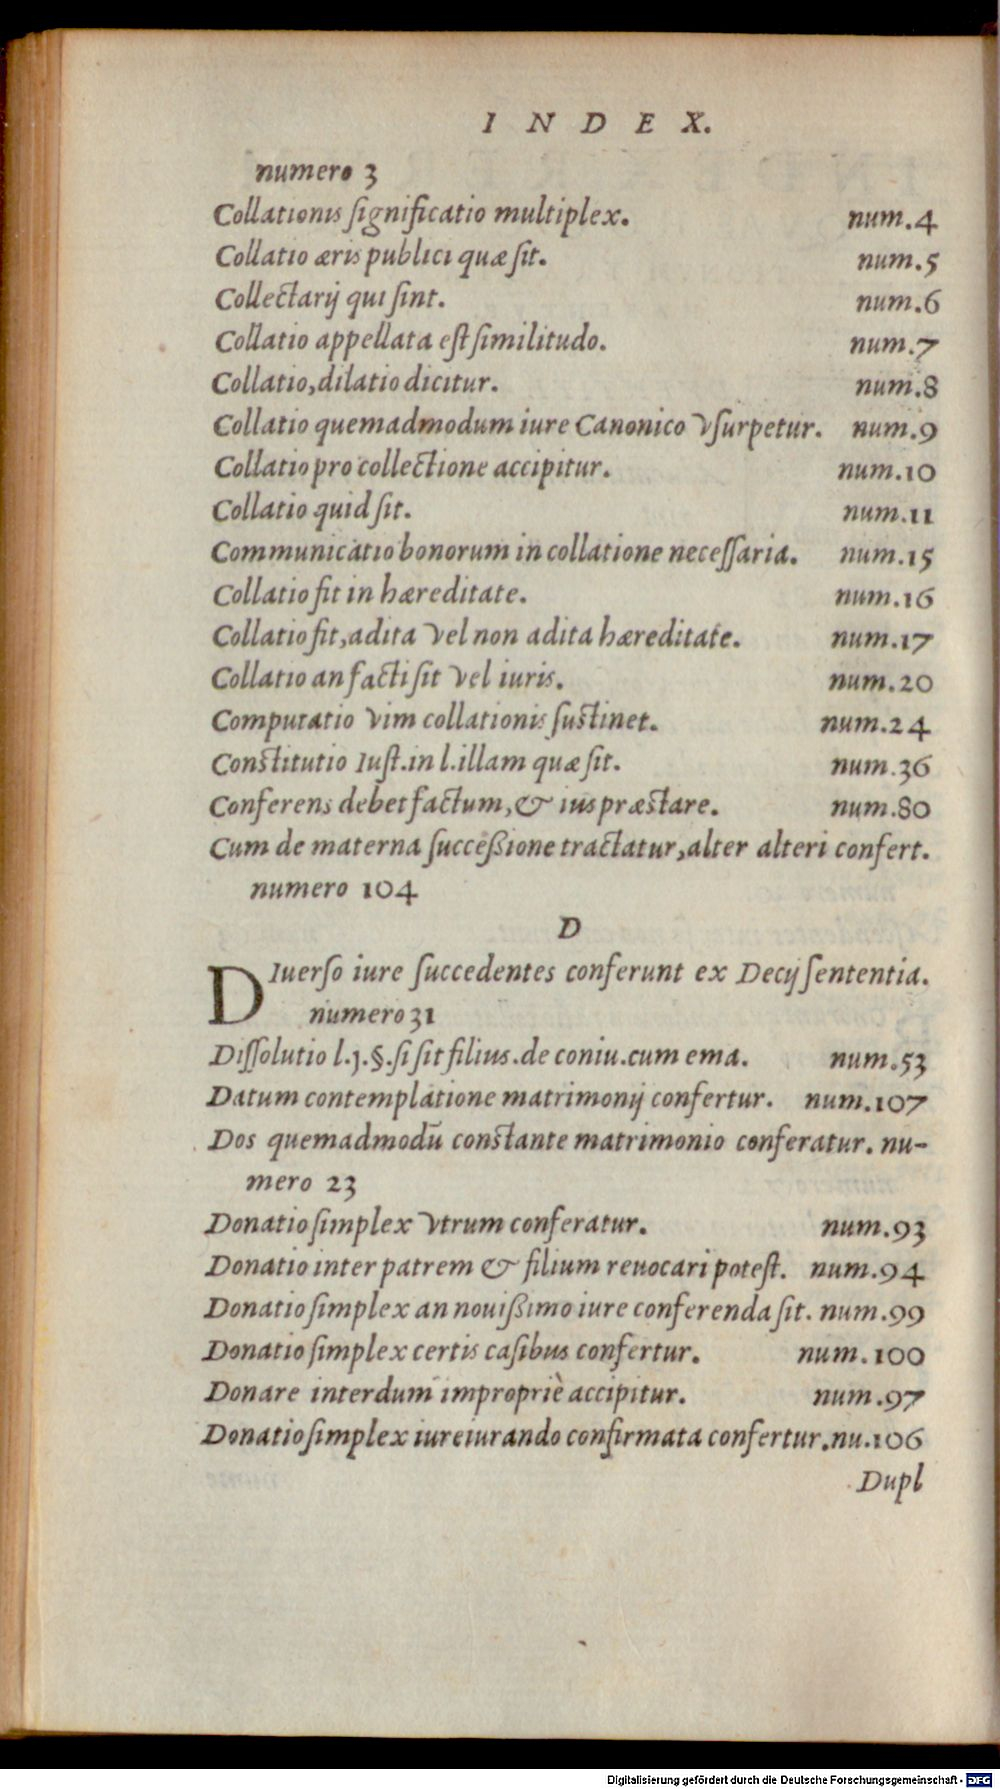 INDEX.
numero 3
Collationis significatio multiplex. num.4
Collatio æris publici quæ sit. num.5
Collectarij qui sint. num.6
Collatio appellata est similitudo. num.7
Collatio, dilatio dicitur. num.8
Collatio quemadmodum iure Canonico vsurpetur. num.9
Collatio pro collectione accipitur. num.10
Collatio quid sit. num.11
Communicatio bonorum in collatione necessaria. num.15
Collatio fit in hæreditate. num.16
Collatio fit, adita vel non adita hæreditate. num.17
Collatio an facti sit vel iuris. num.20
Computatio vim collationis sustinet. num.24
Constitutio Iust. in l. illam quæ sit. num.36
Conferens debet factum, & ius præstare. num.80
Cum de materna successione tractatur, alter alteri confert.
numero 104
D
DIuerso iure succedentes conferunt ex Decij sententia.
numero 31
Dissolutio l.j.§. si sit filius. de coniu. cum ema. num.53
Datum contemplatione matrimonij confertur. num.107
Dos quemadmodū constante matrimonio conferatur. nu-
mero 23
Donatio simplex vtrum conferatur. num.93
Donatio inter patrem & filium reuocari potest. num.94
Donatio simplex an nouissimo iure conferenda sit. num.99
Donatio simplex certis casibus confertur. num.100
Donare interdum impropriè accipitur. num.97
Donatio simplex iureiurando confirmata confertur. nu.106
Dupl
Digitalisierung gefördert durch die Deutsche Forschungsgemeinschaft - DFG